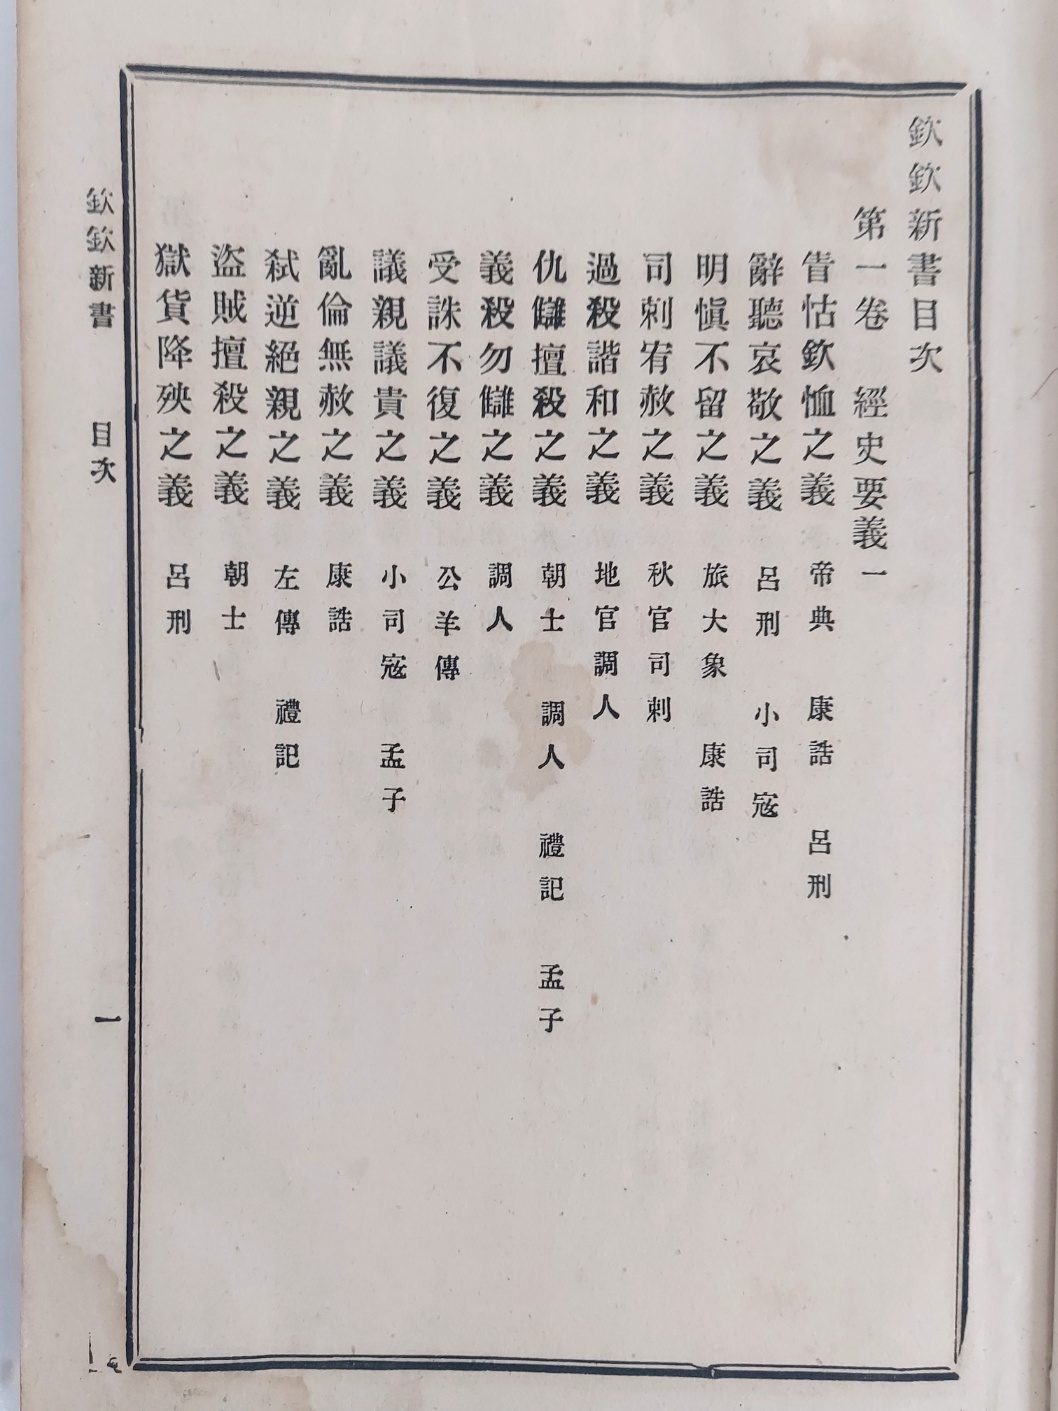 欽欽新書目次
第一卷 經史要義一
眚怙欽恤之義 帝典 康誥 呂刑
辭聽哀敬之義 呂刑 小司寇
明愼不留之義 旅大象 康誥
司刺宥赦之義 秋官司刺
過殺諧和之義 地官調人
仇讎擅殺之義 朝士 調人 禮記 孟子
義殺勿讎之義 調人
受誅不復之義 公羊傳
議親議貴之義 小司寇 孟子
亂倫無赦之義 康誥
弑逆絕親之義 左傳 禮記
盜賊擅殺之義 朝士
獄貨降殃之義 呂刑
欽欽新書 目次 一